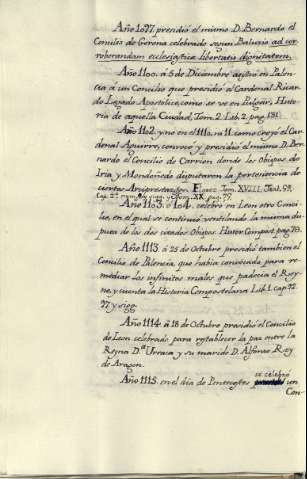 Año 1097. presidió el mismo D. Bernardo el
Concilio de Gerona celebrado segun Balucio ad cor-
roborandam ecclesiasticæ libertatis dignitatem.
Año 1100. á 5 de Diciembre asistió en Palen-
cia á un Concilio que presidió el Cardenal Ricar-
do Legado Apostolico, como se ve en Pulgar, Histo-
ria de aquella Ciudad, Tom. 2. Lib. 2. pag. 131.
Año 1102. y no en el 1110. ni 11. como creyó el Car-
denal Aguirre, convocó y presidió el mismo D. Ber-
nardo el Concilio de Carrion donde los Obispos de
Iria y Mondoñedo disputaron la pertenencia de
ciertos Arciprestazgos. Florez Tom. XVIII. Trat. 59.
Cap. y Tom. XX. pag. 77.
Año 1103. ó 104. celebró en Leon otro Conci-
lio, en el qual se continuó ventilando la misma dis-
puta de los dos citados Obispos. Histor. Compost. pag. 78.
Año 1113. á 25 de Octubre presidió tambien el
Concilio de Palencia, que habia convocado para re-
mediar los infinitos males que padecia el Rey-
no, y cuenta la Historia Compostelana Lib. 1. cap.
97 y sigg.
Año 1114. á 18 de Octubre presidió el Concilio
de Leon celebrado para restablecer la paz entre la
Reyna D.ª Urraca y su marido D. Alfonso Rey
de Aragon.
se celebró
Año 1115. en el dia de Pentecostes un
Con-